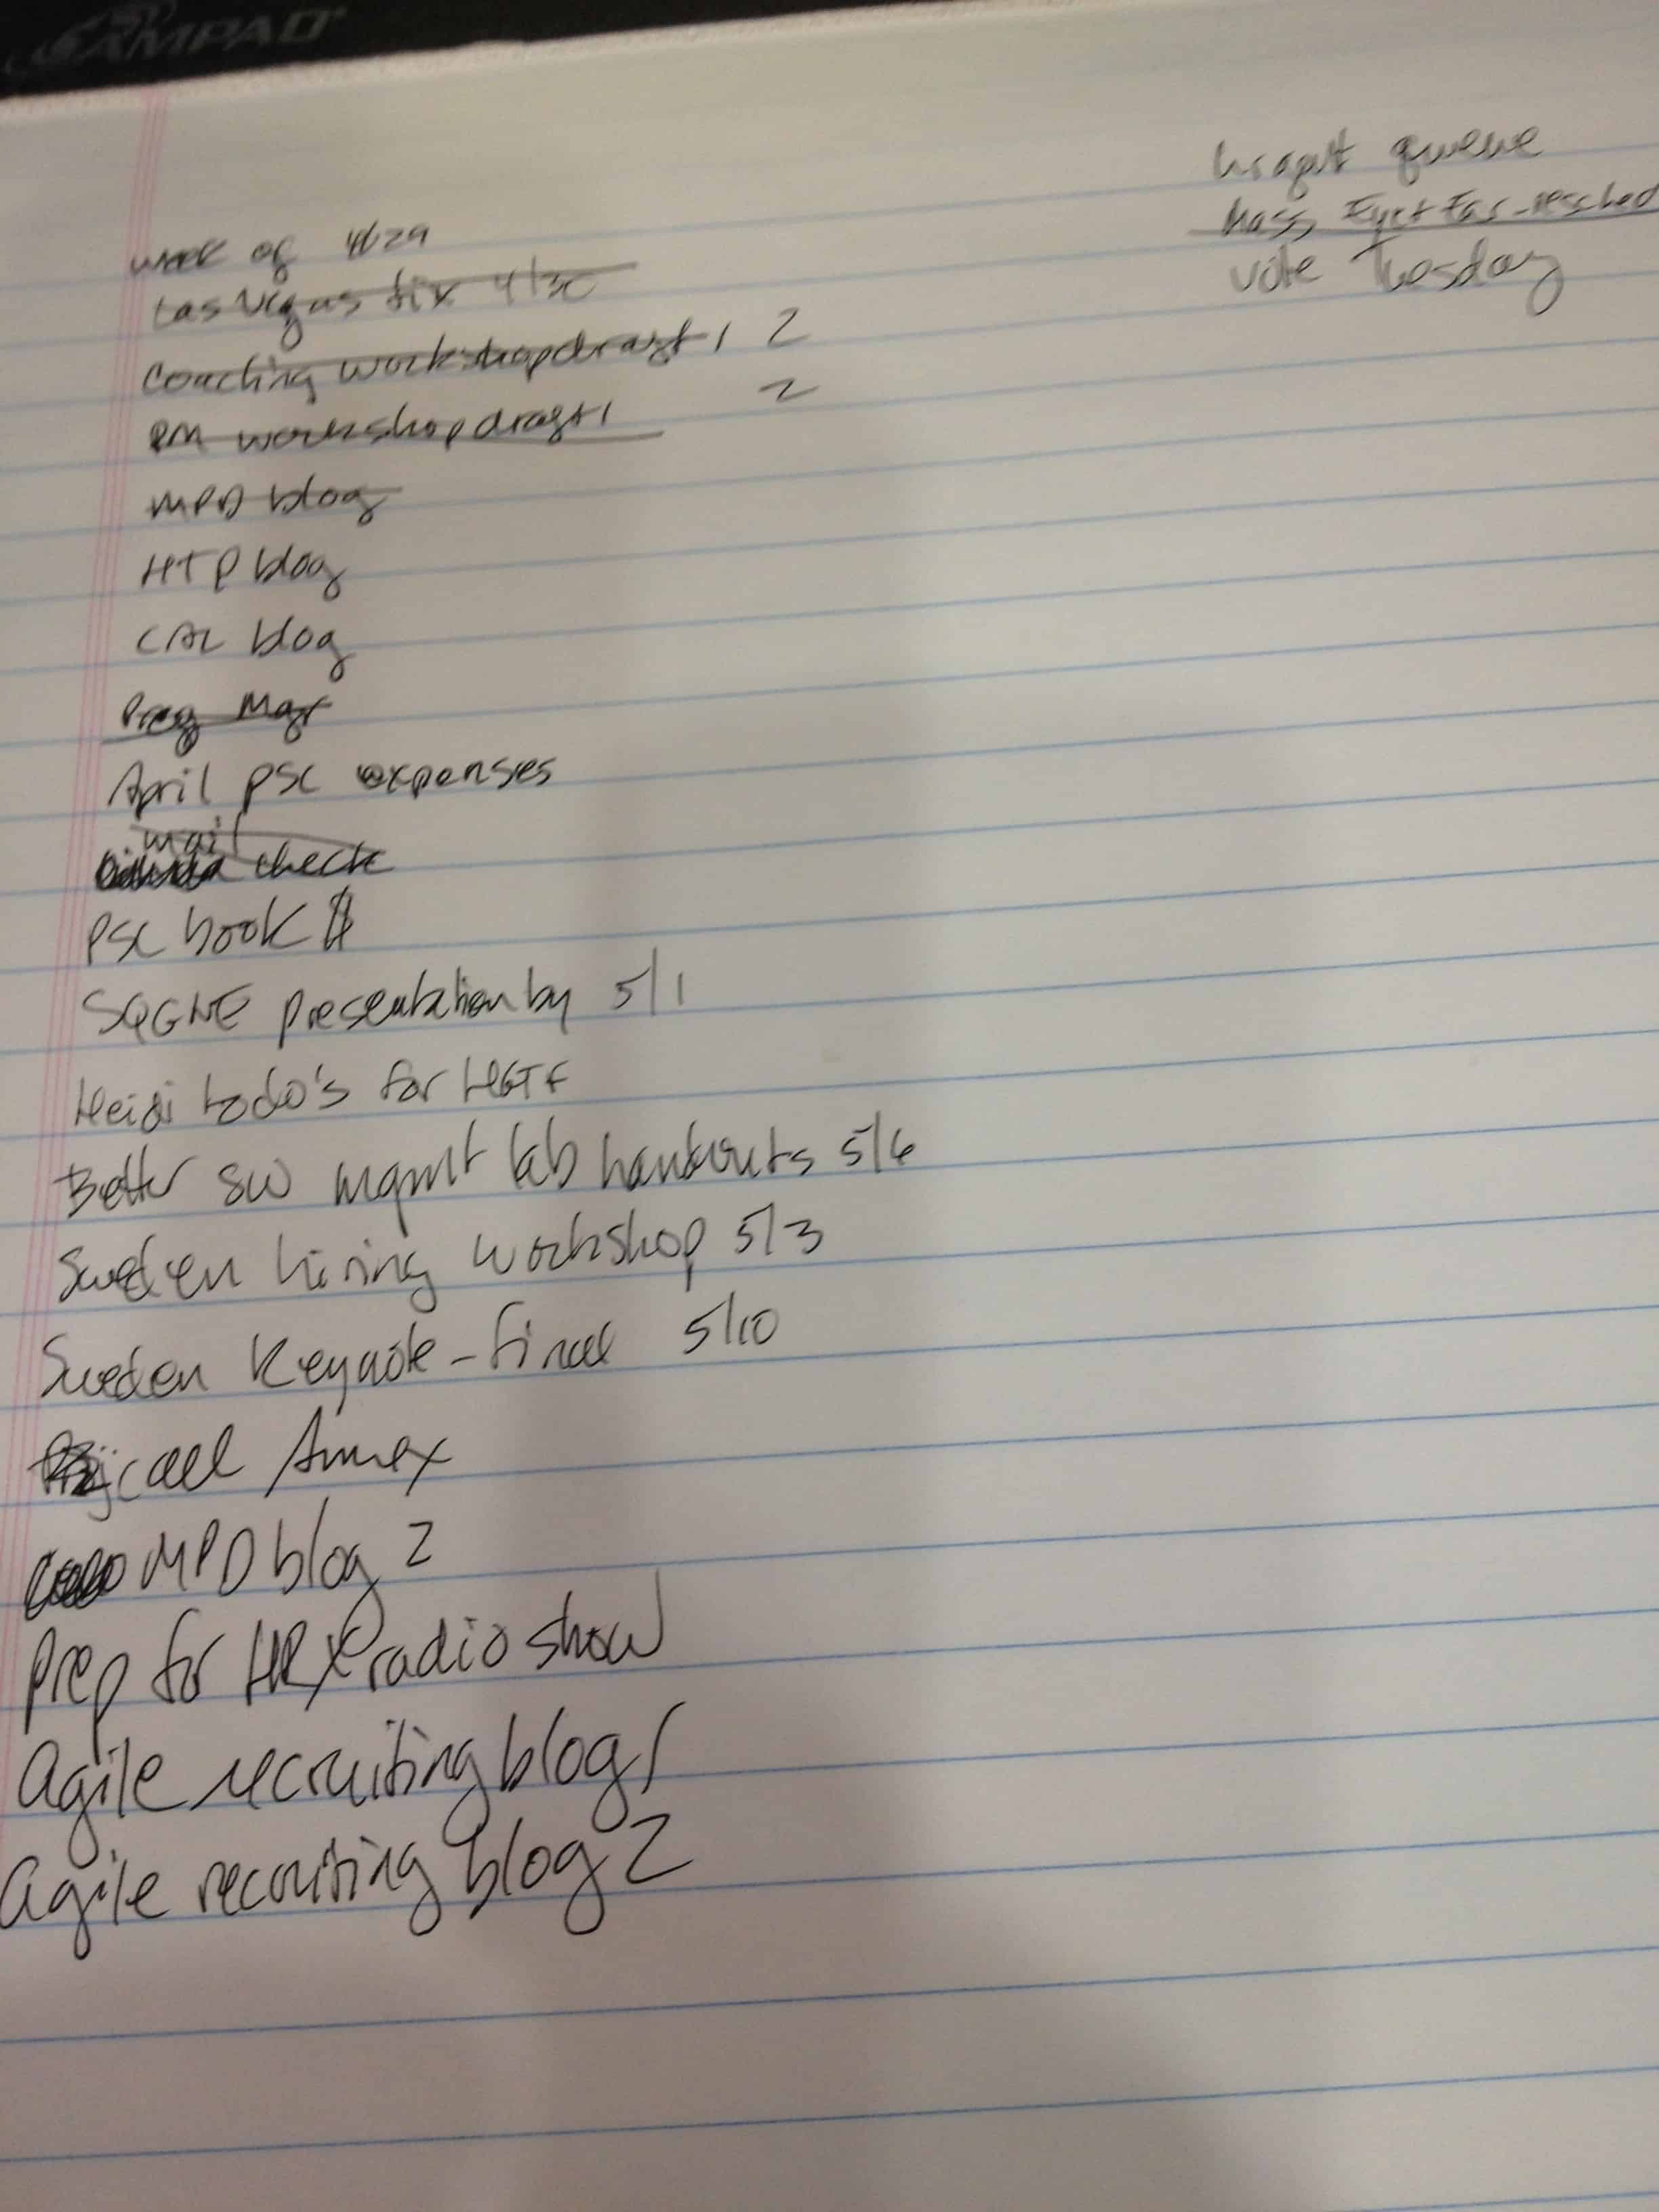 AMPAD
Urgent queue
Mass Eye & Ear - resched
Vote Tuesday
week of 4/29
Las Vegas fix 4/30
Coaching workshop draft 1 2
PM workshop draft 1 2
MPD blog
HTP blog
CAL blog
Prag Mgr
April PSC expenses
mail
check
PSC book $
SQGNE presentation by 5/1
Heidi todo's for HGTF
Better SW mgmt lab handouts 5/6
Sweden hiring workshop 5/3
Sweden Keynote - final 5/10
call Annex
MPD blog 2
Prep for HR radio show
Agile recruiting blog 1
Agile recruiting blog 2